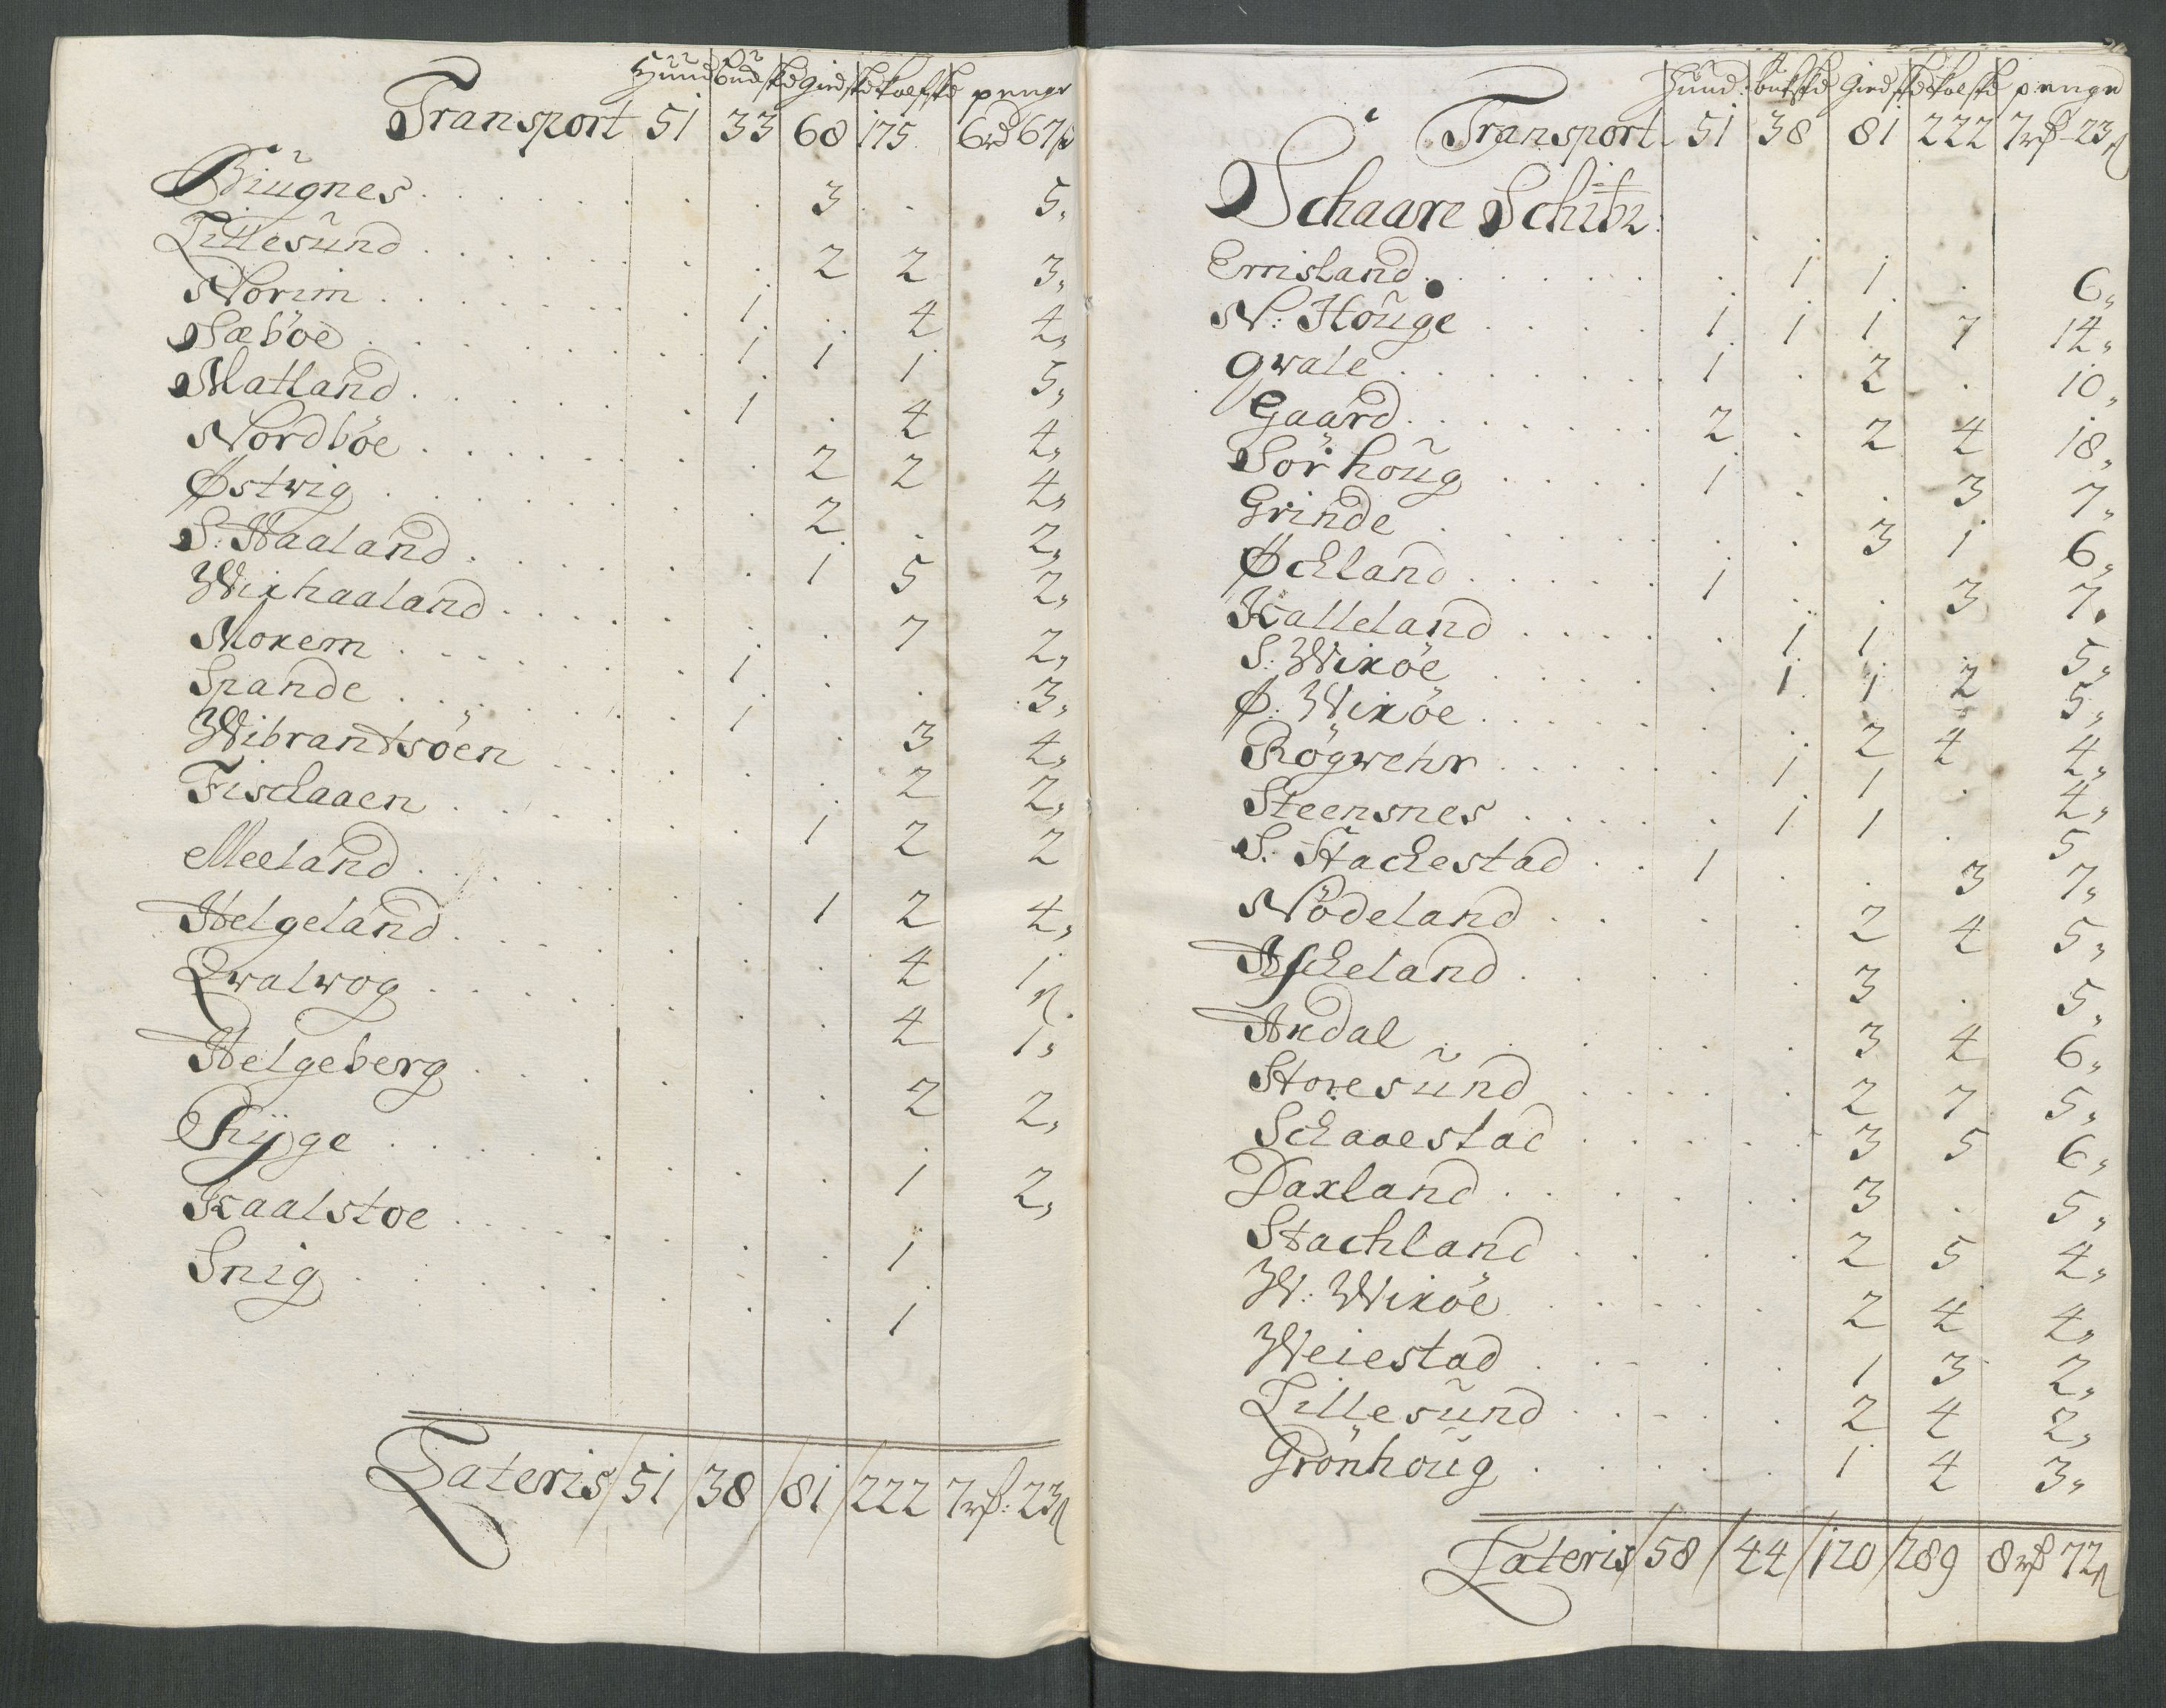 Hund budske giedske kalfske penge
Transport 51 33 68 175 6rd 67ß
Biugnes 3 5,
Lillesund 2 2 3,
Norim 1 4 4,
Sæböe 1 1 1 5,
Matland 1 4 4,
Nordböe 2 2 4,
Østwig 2 2,
S: Haaland 1 5 2,
Wixhaaland 7 2,
Moxem 1 3,
Spande 1 3 4,
Wibrantsöen 2 2,
Fisckaaen 1 2 2
Meeland 1 2 4,
Helgeland 4 1ß.
Qwalwog 4 1,
Helgeberg 2 2,
Rÿge 1 2,
Kaalstoe 1
Snig 1
Lateris 51 38 81 222 7rß: 23ß
Hund: bukske Giedske kalfske penge
Transport 51 38 81 222 7rß 23ß
Schaare Schib:
Emisland 1 1 6,
N: Houge 1 1 1 7 14,
qwale 1 2 10,
Gaard 2 2 4 18,
Sörhoug 1 3 7,
Grinde 3 1 6,
Øckland 1 3 7,
Kalleland 1 1 5,
S: Wixöe 1 1 2 5,
Ø: Wixöe 2 4 4,
Rögwehr 1 1 4,
Steensnes 1 1 5
S: Stackestad 1 3 7,
Nödeland 2 4 5,
Asckeland 3 5,
Axdal 3 4 6,
Storesund 2 7 5,
Sckaaestad 3 5 6,
Daxland 3 5,
Stachland 2 5 4,
W: Wixöe 2 4 4,
Weiestad 1 3 2,
Lillesund 2 4 2,
Grönhoug 1 4 3,
Lateris 58 44 120 289 8rß 72ß